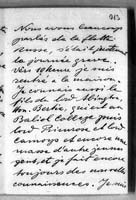 213
Nous avons beaucoup
parlé de la flotte
russe,
la journée
Vers 10 heures je suis
rentré à la maison.
Je connais aussi le
fils de Lord
Hon. Bertie, qui est au
Balliol College puis
Lord
et encore un
masse d'autre jeunes
gens, et je fais encore
toujours des nouvelles
connaissances. Je suis